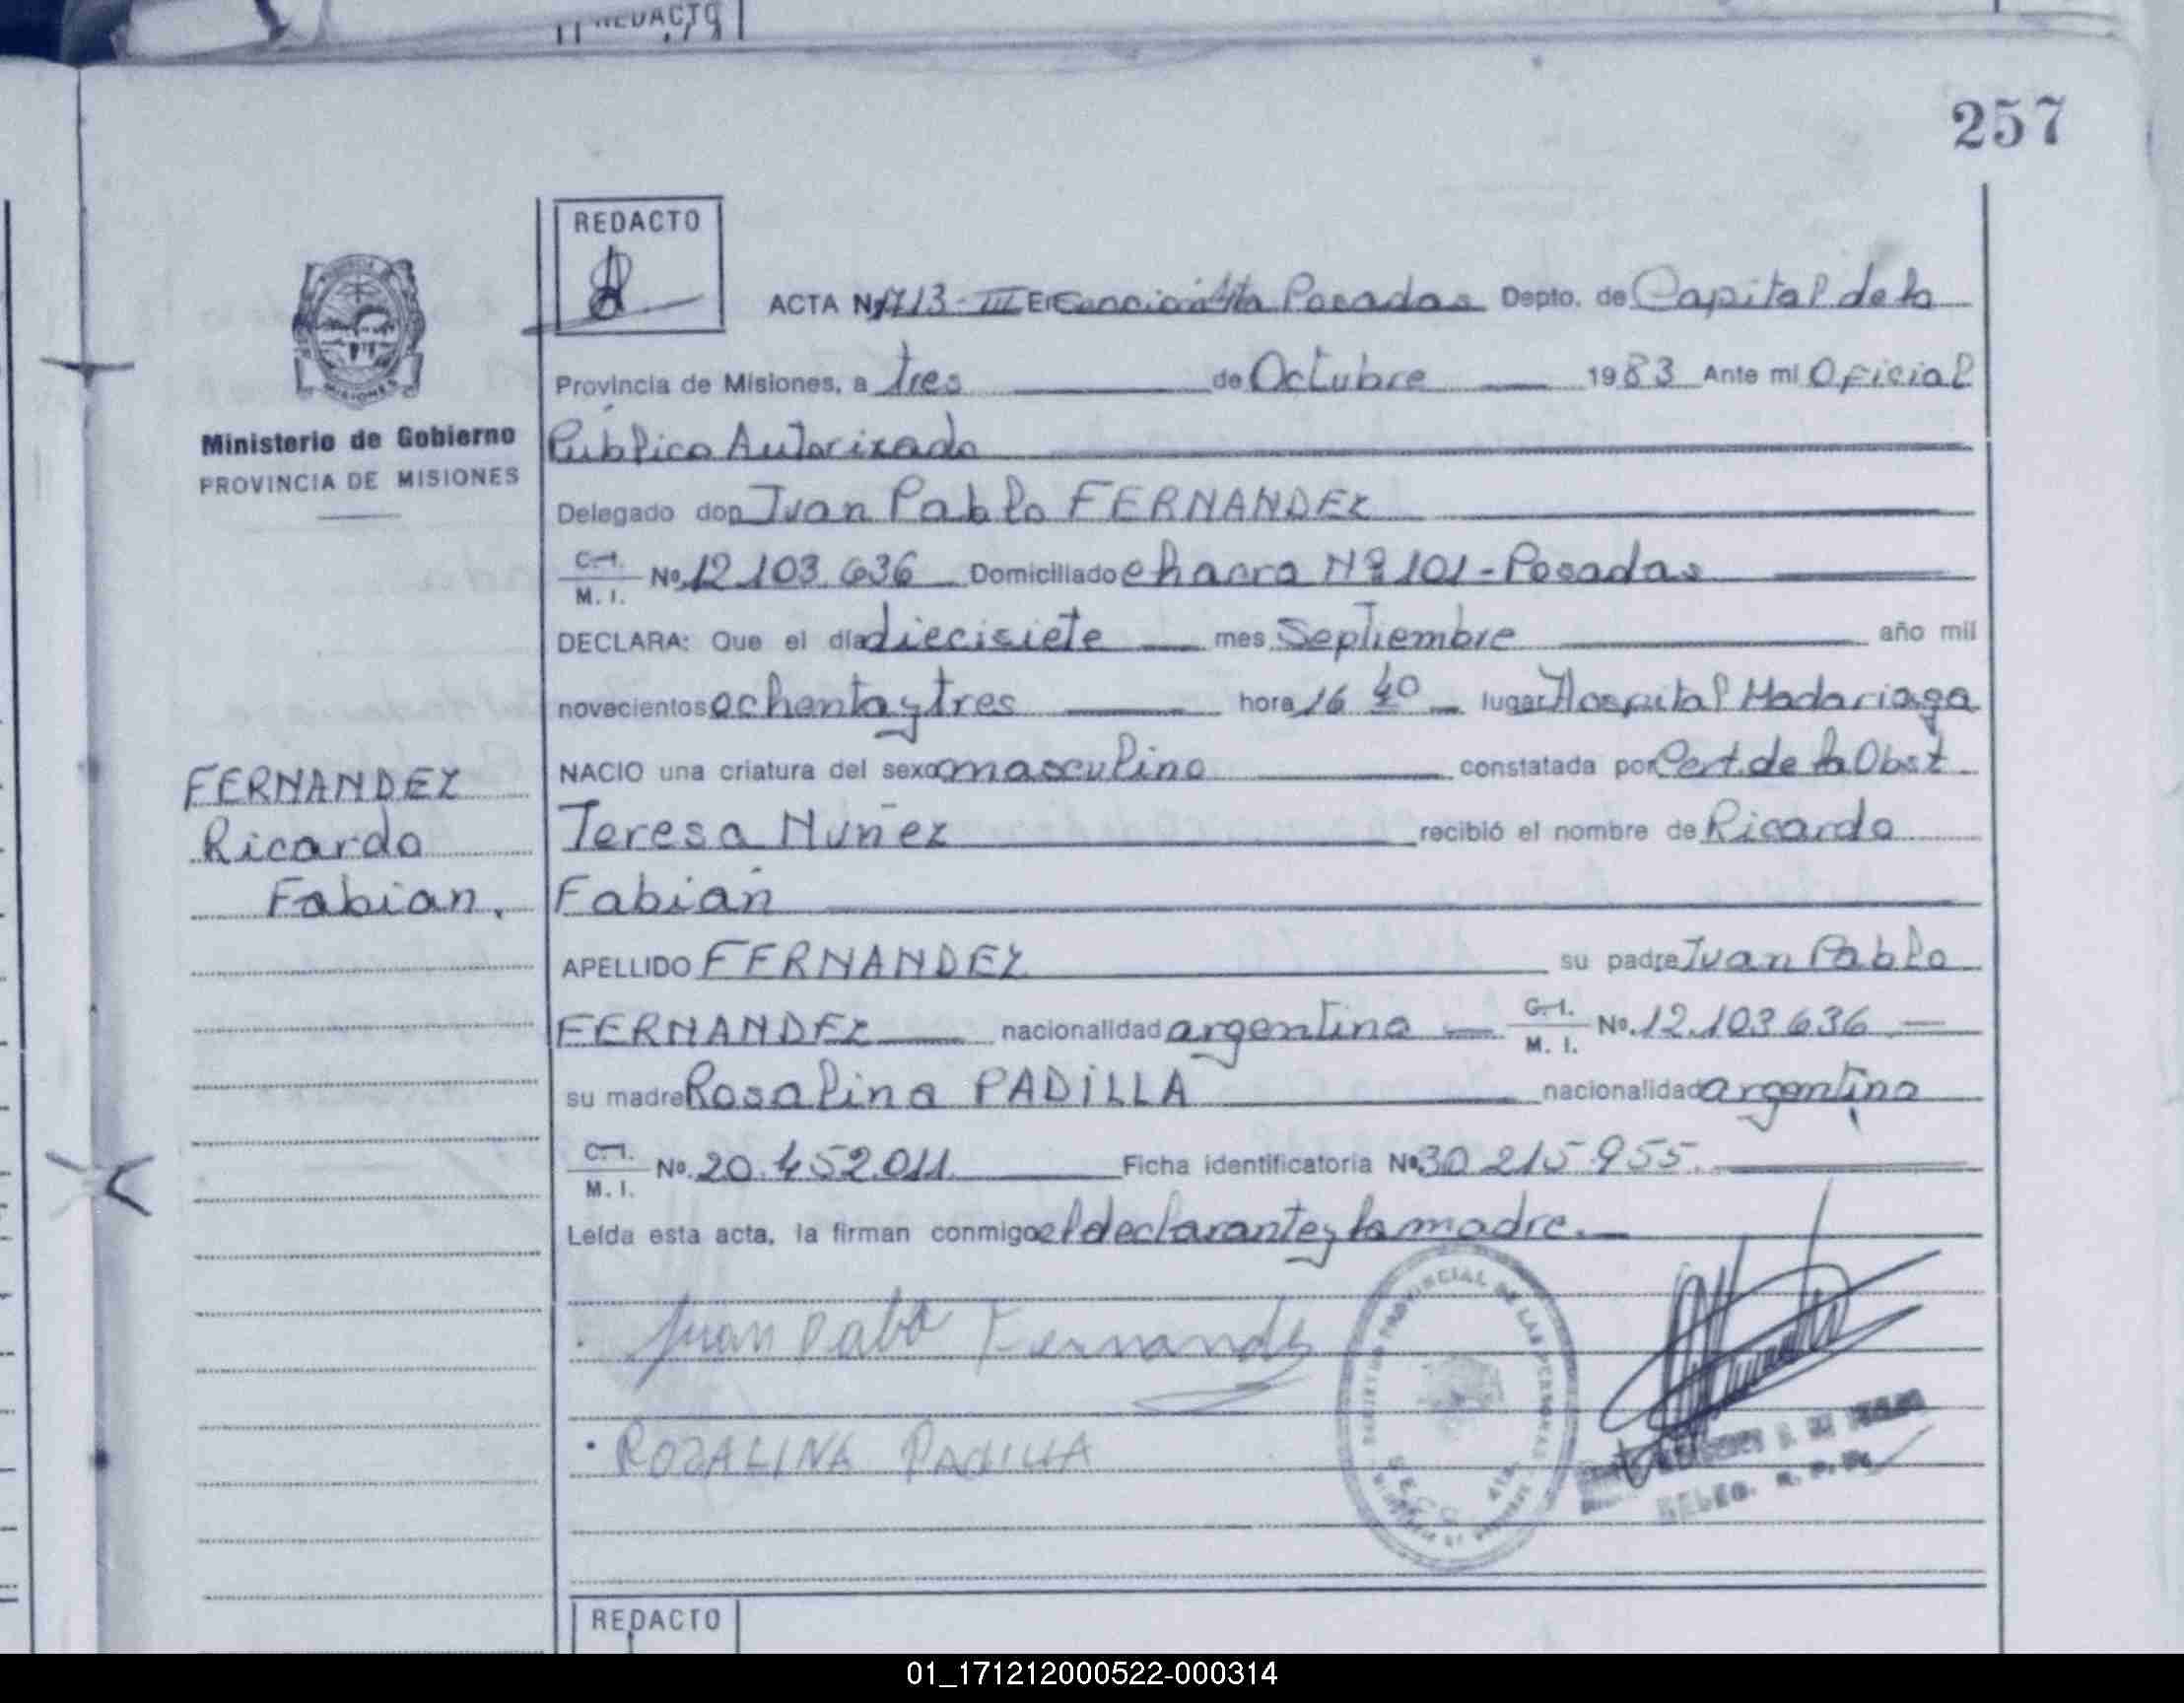 REDACTO
257
REDACTO
ACTA Nº 1713-III En Sección 4ta Posadas Depto. de Capital de la
Provincia de Misiones, a tres de Octubre 1983 Ante mi Oficial
Ministerio de Gobierno
Público Autorizado
PROVINCIA DE MISIONES
Delegado don Juan Pablo FERNANDEZ
C.I.
M. I. No. 12.103.636 Domiciliado chacra Nº 101-Posadas
DECLARA: Que el día diecisiete mes Septiembre año mil
novecientos ochenta y tres hora 16 40 lugar Hospital Madariaga
NACIO una criatura del sexo masculino constatada por Cert. de la Obst
FERNANDEZ
Teresa Nuñez recibió el nombre de Ricardo
Ricardo
Fabián
Fabian.
APELLIDO FERNANDEZ su padre Juan Pablo
FERNANDEZ nacionalidad argentino C.I.
M. I. No. 12.103.636
su madre Rosalina PADILLA nacionalidad argentina
C.I.
M. I. No. 20.452.011 Ficha identificatoria Nº 30.215.955.
Leída esta acta, la firman conmigo el declarante y la madre.
Juan Pablo Fernandez
ROZALINA PADILLA
PROVINCIAL DE LAS PERSONAS
DELEG. R. P. P.
REDACTO
01_171212000522-000314